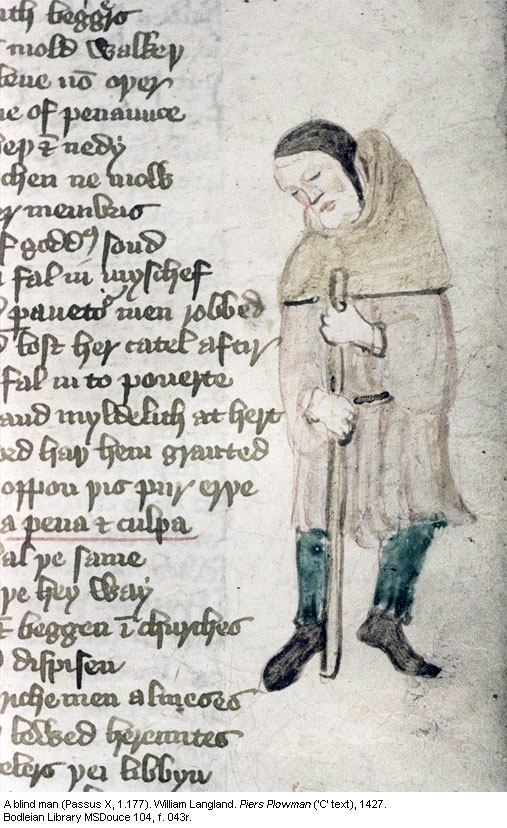 ith begg
mold walkeþ
leue no oþer
ne of penaunce
& nedy
chen ne mow
membris
f godd sond
fal in myschef
men robbed
lost her catel aftir
fal in to pouerte
and myldelich at hert
haþ hem graunted
oppon þis pur erþe
a pena & culpa
al þe same
þe hey way
& beggen i churches
dispisen
riche men almeses
lewed heremites
þei libbyn
A blind man (Passus X, 1.177). William Langland. Piers Plowman ('C' text), 1427.
Bodleian Library MSDouce 104, f. 043r.